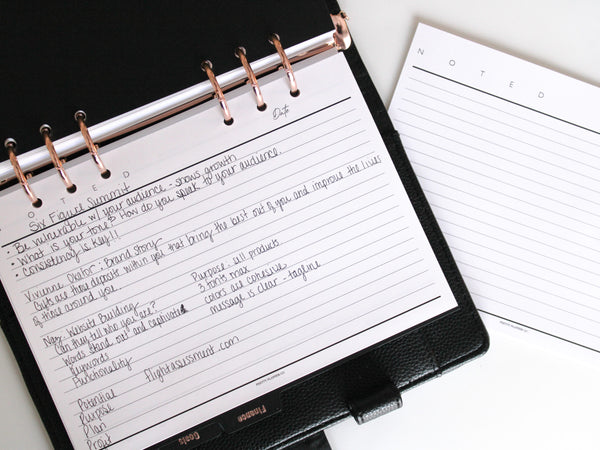 Date
N O T E D
Six Figure Summit
• Be vulnerable w/ your audience - shows growth
• What is your tone? How do you speak to your audience.
• Consistency is key!!
Vivienne : Brand story
Gifts are they deposits within you that bring the best out of you and improve the lives
of those around you.
Website Building
Can they tell who you are?
Words stand out and
Keywords
Functionality
Purpose: sell products
3 fonts max
colors are cohesive
message is clear - tagline
Potential
Purpose
Plan
Proof
Goals
Finance
N O T E D